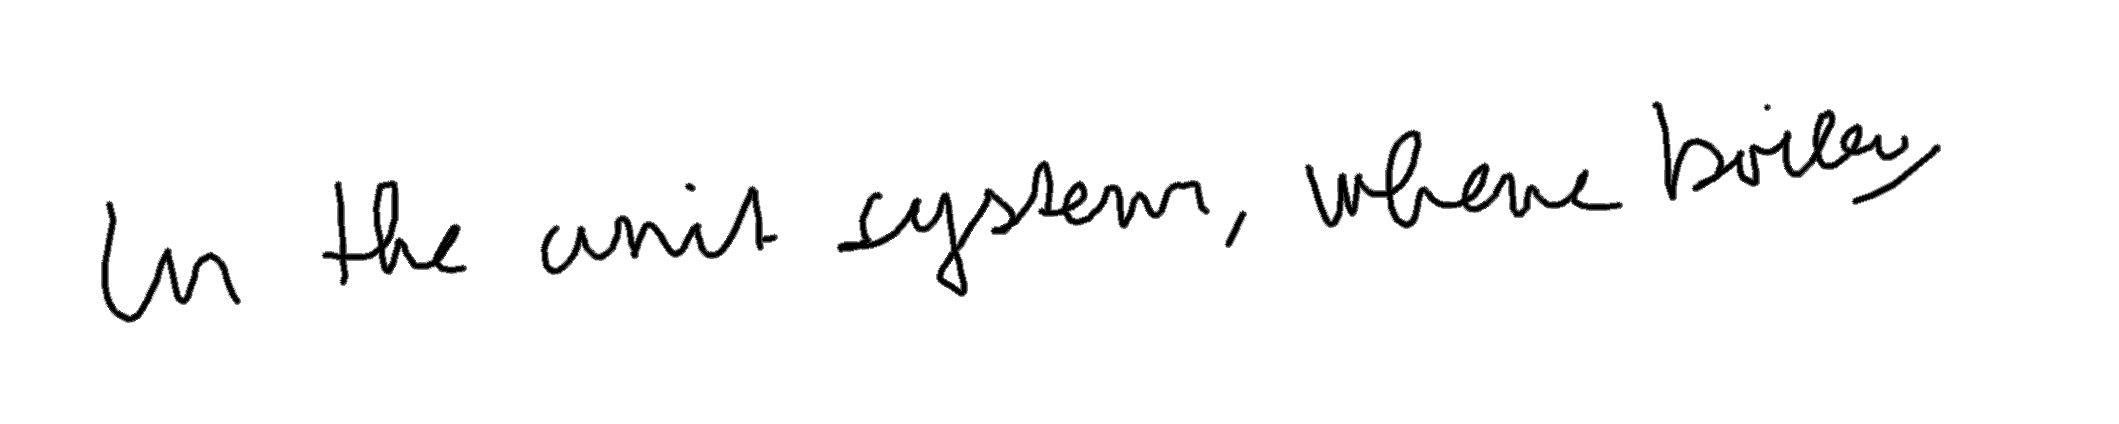 In the unit system, where boiler,